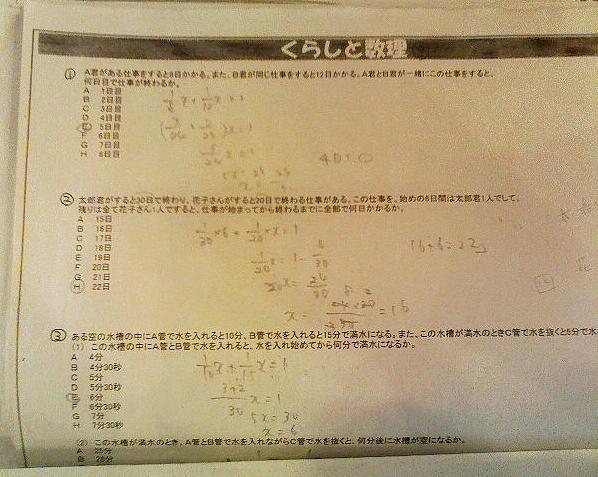 くらしと数理
① A君がある仕事をすると8日かかる。また、B君が同じ仕事をすると12日かかる。A君とB君が一緒にこの仕事をすると、
何日目で仕事が終わるか。
A 1日目
B 2日目
C 3日目
D 4日目
E 5日目
F 6日目
G 7日目
H 8日目
② 太郎君がすると30日で終わり、花子さんがすると20日で終わる仕事がある。この仕事を、始めの6日間は太郎君1人でして、
残りは全て花子さん1人ですると、仕事が始まってから終わるまでに全部で何日かかるか。
A 15日
B 16日
C 17日
D 18日
E 19日
F 20日
G 21日
H 22日
1/30×6+1/20×x=1
16+6=22
③ ある空の水槽の中にA管で水を入れると10分、B管で水を入れると15分で満水になる。また、この水槽が満水のときC管で水を抜くと5分で水
(1) この水槽の中にA管とB管で水を入れると、水を入れ始めてから何分で満水になるか。
A 4分
B 4分30秒
C 5分
D 5分30秒
E 6分
F 6分30秒
G 7分
H 7分30秒
3+2/30 x=1
5x=30
x=6
(2) この水槽が満水のとき、A管とB管で水を入れながらC管で水を抜くと、何分後に水槽が空になるか。
A 25分